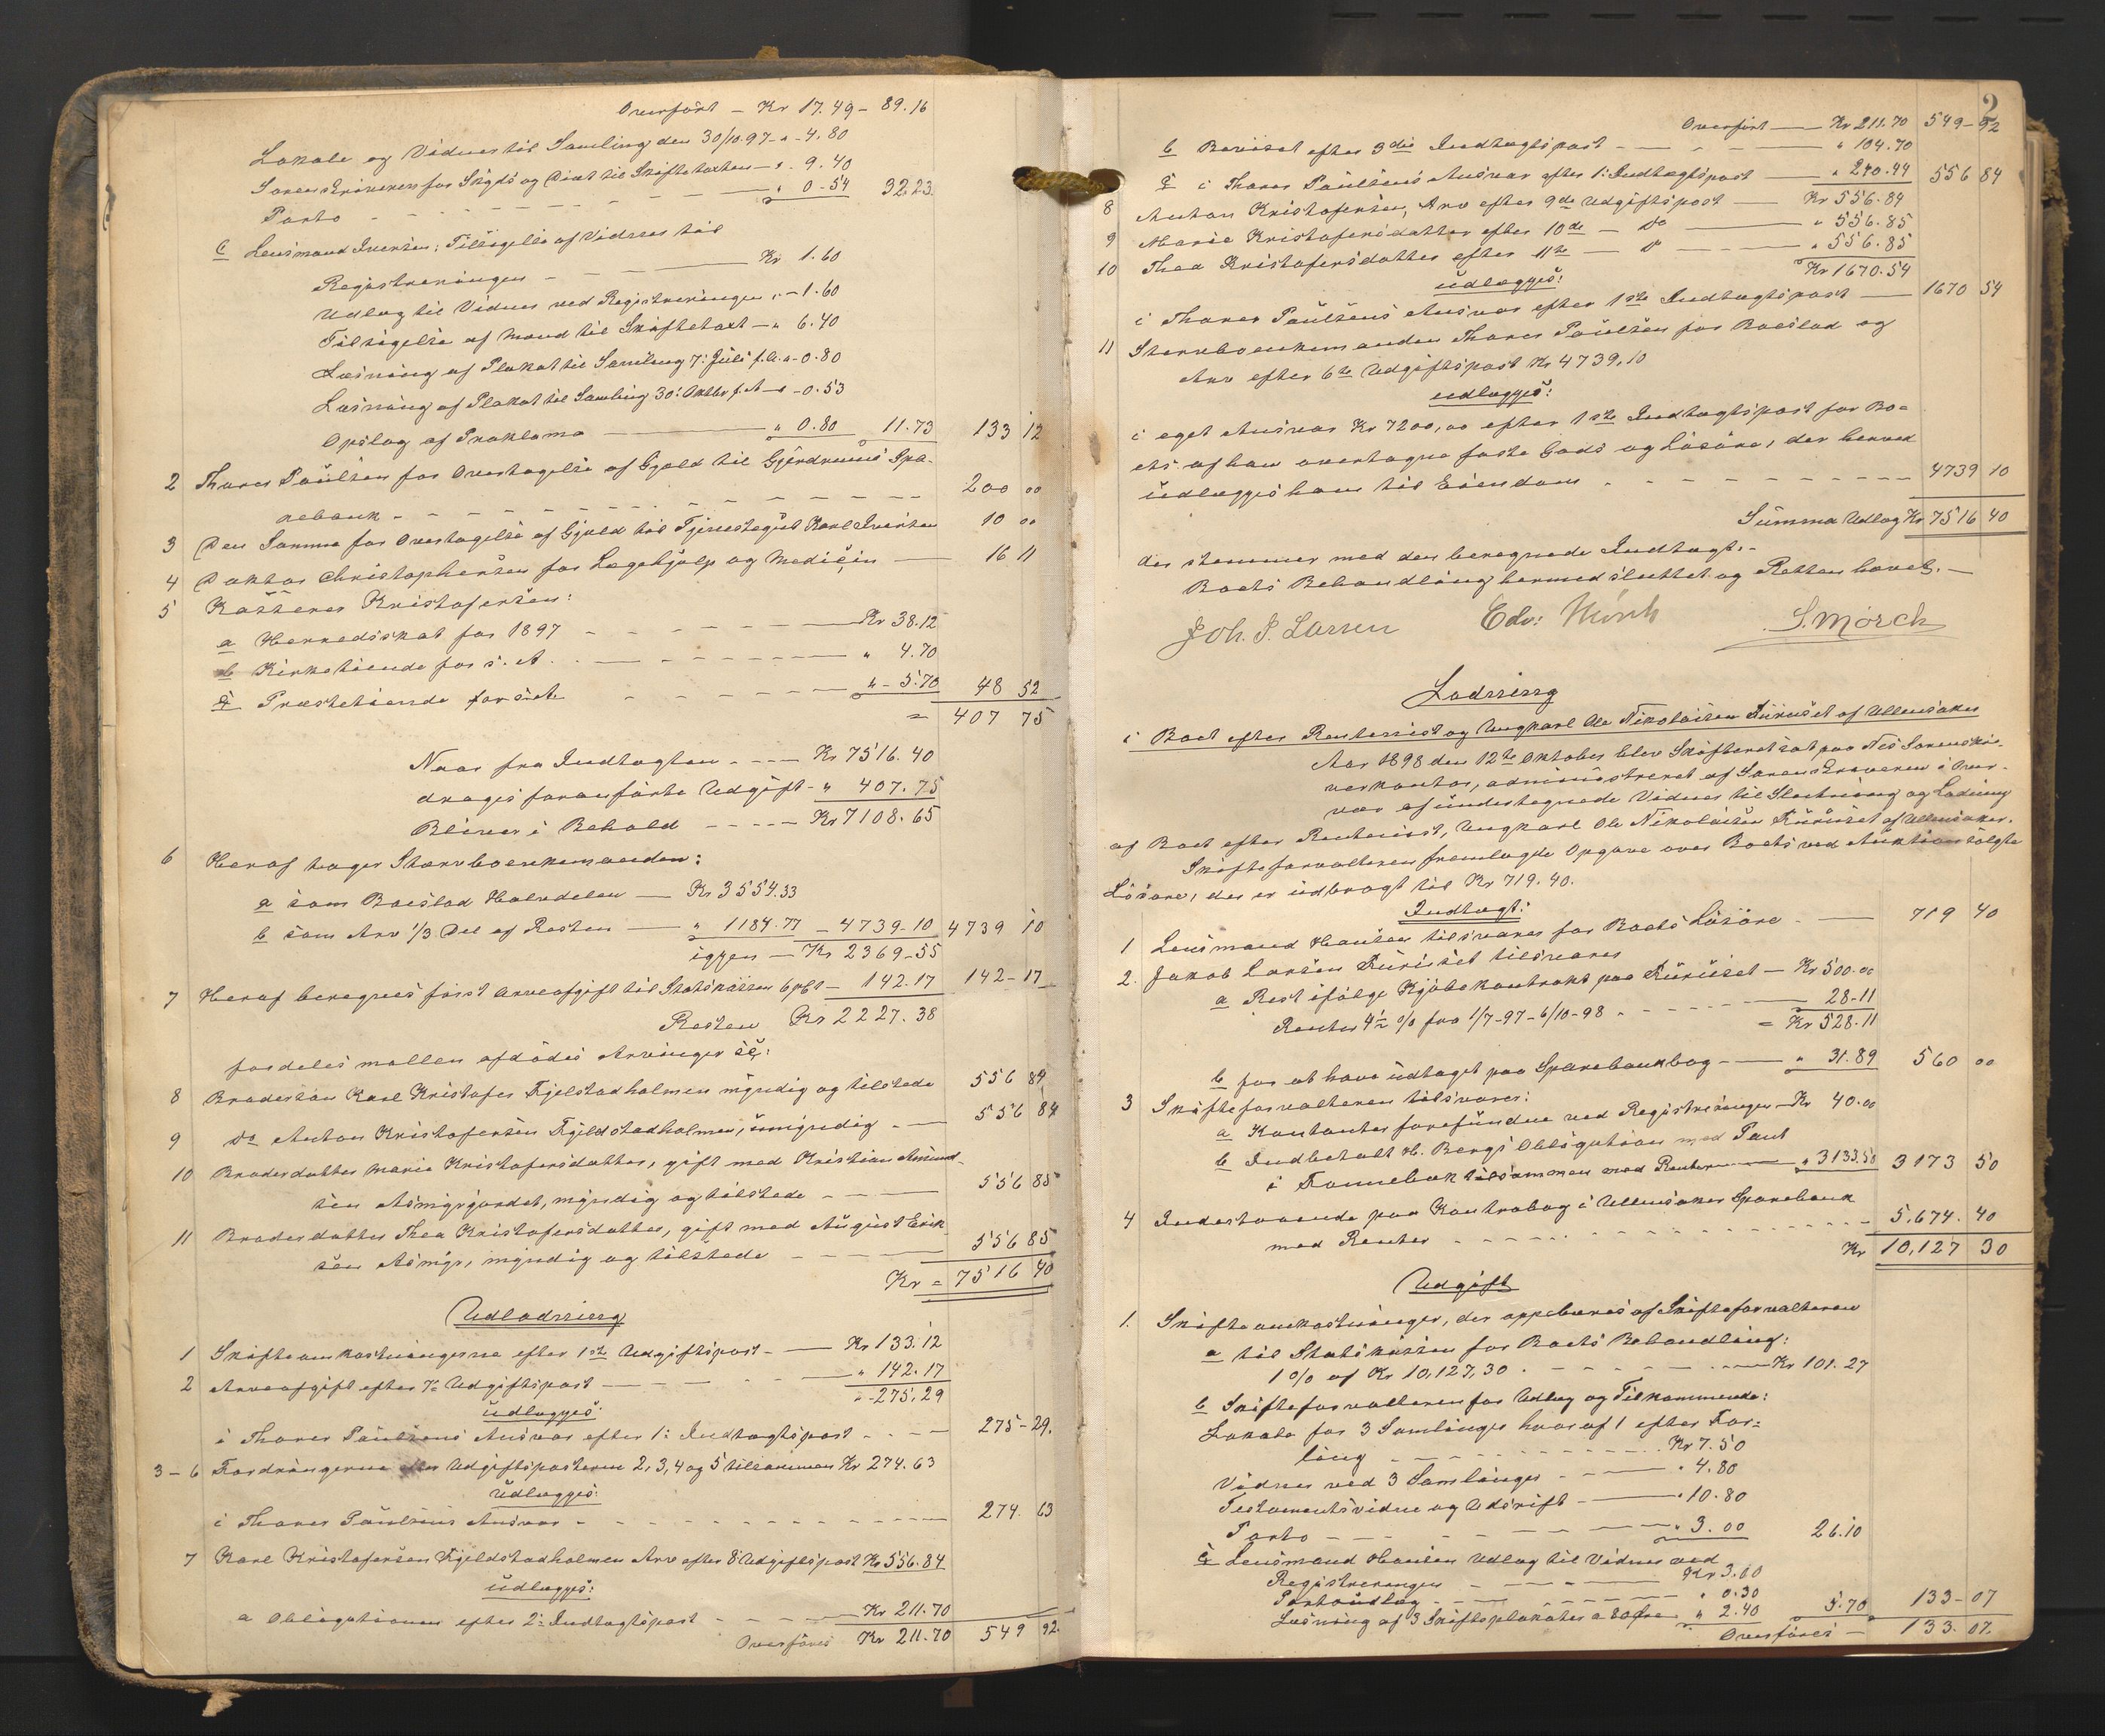 Overført – Kr 17.49 – 89.16
Lokale og Vidner til Samling den 30/10 97 – " – 4.80
Sorenskriveren for Skyds og Diæt til Skiftetaxten – " 9.40
Porto – " 0-54 32.23
c Lensmand Iversen: Tilsigelse af Vidner til
Registreringen – Kr 1.60
Udlæg til Vidner ved Registreringen " – 1.60
Tilsigelse af Mænd til Skiftetaxt – " 6.40
Læsning af Plakat til Samling 7: Juli f.A. " – 0.80
Læsning af Plakat til Samling 30: Oktbr f. A – " – 0.53
Opslag af Proklama " 0.80 11.73 133 12
2 Thorer Paulsen for Overtagelse af Gjæld til Gjerdrums Spa-
rebank 200 00
3 Den Samme for Overtagelse af Gjæld til Tjenestegut Karl Iversen 10 00
4 Doktor Christophersen for Lægehjælp og Medicin 16 11
5 Kasserer Kristofersen:
a Herredsskat for 1897 Kr 38.12
b Kirketiende for s. A. " 4.70
c Præstetiende for s. A. " – 5.70 48 52
= 407 75
Naar fra Indtægten Kr 7516.40
drages foranførte Udgift " 407.75
Bliver i Behold Kr 7108.65
6 Heraf tager Stervboenkemanden:
a som Boeslod Halvdelen Kr 3554.33
b som Arv 1/3 Del af Resten " 1184.77 – 4739-10 4739 10
igjen – Kr 2369-55
7 Heraf beregnes først Arveafgift til Statskassen 6 pCt – 142.17 142-17
Resten Kr 2227.38
fordeles mellem afdødes Arvinger så:
8 Brodersøn Karl Kristofer Fjeldstadholmen myndig og tilstede 556 84
9 Do Anton Kristofersen Fjeldstadholmen, umyndig 556 84
10 Broderdatter Marie Kristofersdatter, gift med Kristian Amund-
sen Asmyrjordet, myndig og tilstede 556 85
11 Broderdatter Thea Kristofersdatter, gift med August Erik-
sen Asmyr, myndig og tilstede 556 85
Kr = 7516 40
Udlodning
1 Skifteomkostningerne efter 1ste Udgiftspost Kr 133.12
2 Arveafgift efter 7de Udgiftspost " 142.17
" – 275,29
udlægges:
i Thorer Paulsens Ansvar efter 1: Indtægtspost 275-29.
3 – 6 Fordringerne efter Udgiftsposterne 2, 3, 4 og 5 tilsammen Kr 274.63
udlægges:
i Thorer Paulsens Ansvar 274. 63
7 Karl Kristofersen Fjeldstadholmen Arv efter 8: Udgiftspost Kr 556.84
udlægges:
a Obligationen efter 2: Indtægtspost Kr 211.70
Overføres Kr 211.70 549 92.
2
Overført Kr 211.70 549-92
b Beviset efter 3die Indtægtspost " 104.70
c i Thorer Paulsens Ansvar efter 1: Indtægtspost " 240.44 556 84
8 Anton Kristofersen, Arv efter 9de Udgiftspost Kr 556.84
9 Marie Kristofersdatter efter 10de – Do " 556.85
10 Thea Kristofersdatter efter 11te – Do " 556.85
Kr 1670.54
udlægges:
i Thorer Paulsens Ansvar efter 1ste Indtægtspost 1670 54
11 Stervboenkemanden Thorer Paulsen for Boeslod og
Arv efter 6te Udgiftspost Kr 4739,10
udlægges:
i eget Ansvar Kr 7200,00 efter 1ste Indtægtspost for Bo-
ets af ham overtagne faste Gods og Løsøre, der herved
udlægges ham til Eiendom 4739 10
Summa Udlæg Kr 7516 40
der stemmer med den beregnede Indtægt. –
Boets Behandling hermed sluttet og Retten hævet. –
Joh. P. Larsen Edv: Mørch S. Mørch
Lodning
i Boet efter Rentenist og Ungkarl Ole Nikolaisen Furuset af Ullensaker
Aar 1898 den 12te Oktober blev Skifteret sat paa Nes Sorenskri-
verkontor, administreret af Sorenskriveren i Over-
vær af undertegnede Vidner til Slutning og Lodning
af Boet efter Rentenist, Ungkarl Ole Nikolaisen Furuset af Ullensaker.
Skifteforvalteren fremlagde Opgave over Boets ved Auktion solgte
Løsøre, der er udbragt til Kr 719.40.
Indtægt:
1 Lensmand Hansen tilsvarer for Boets Løsøre 719 40
2. Jakob Larsen Furuset tilsvarer
a Rest ifølge Kjøbekontrakt paa Furuset – Kr 500.00
Renter 4½ % fra 1/7-97 – 6/10-98 28-11
= Kr 528.11
b for at have udtaget paa Sparebankbog " 31.89 560 00
3 Skifteforvalteren tilsvarer:
a Kontanter forefundne ved Registreringen Kr 40.00
b Indbetalt H. Bergs Obligation med Pant
i Fannebæk tilsammen med Renter " 3133.50 3173 50
4 Indestaaende paa Kontrabog i Ullensaker Sparebank
med Renter 5,674. 40
Kr 10,127 30
Udgift
1. Skifteomkostninger, der oppebæres af Skifteforvalteren
a til Statskassen for Boets Behandling:
1 % af Kr 10,127,30 Kr 101.27
b Skifteforvalteren for Udlæg og Tilkommende:
Lokale for 3 Samlinger hvoraf 1 efter For-
ling Kr 7.50
Vidner ved 3 Samlinger " 4.80
Testamentsvidne og Udskrift " 10.80
Porto " 3.00 26.10
c Lensmand Hansen Udlæg til Vidner ved
Registreringen Kr 3.00
Portoudlæg " 0.30
Læsning af 3 Skifteplakater a 80 Øre " 2.40 5.70 133-07
Overføres – 133. 07.